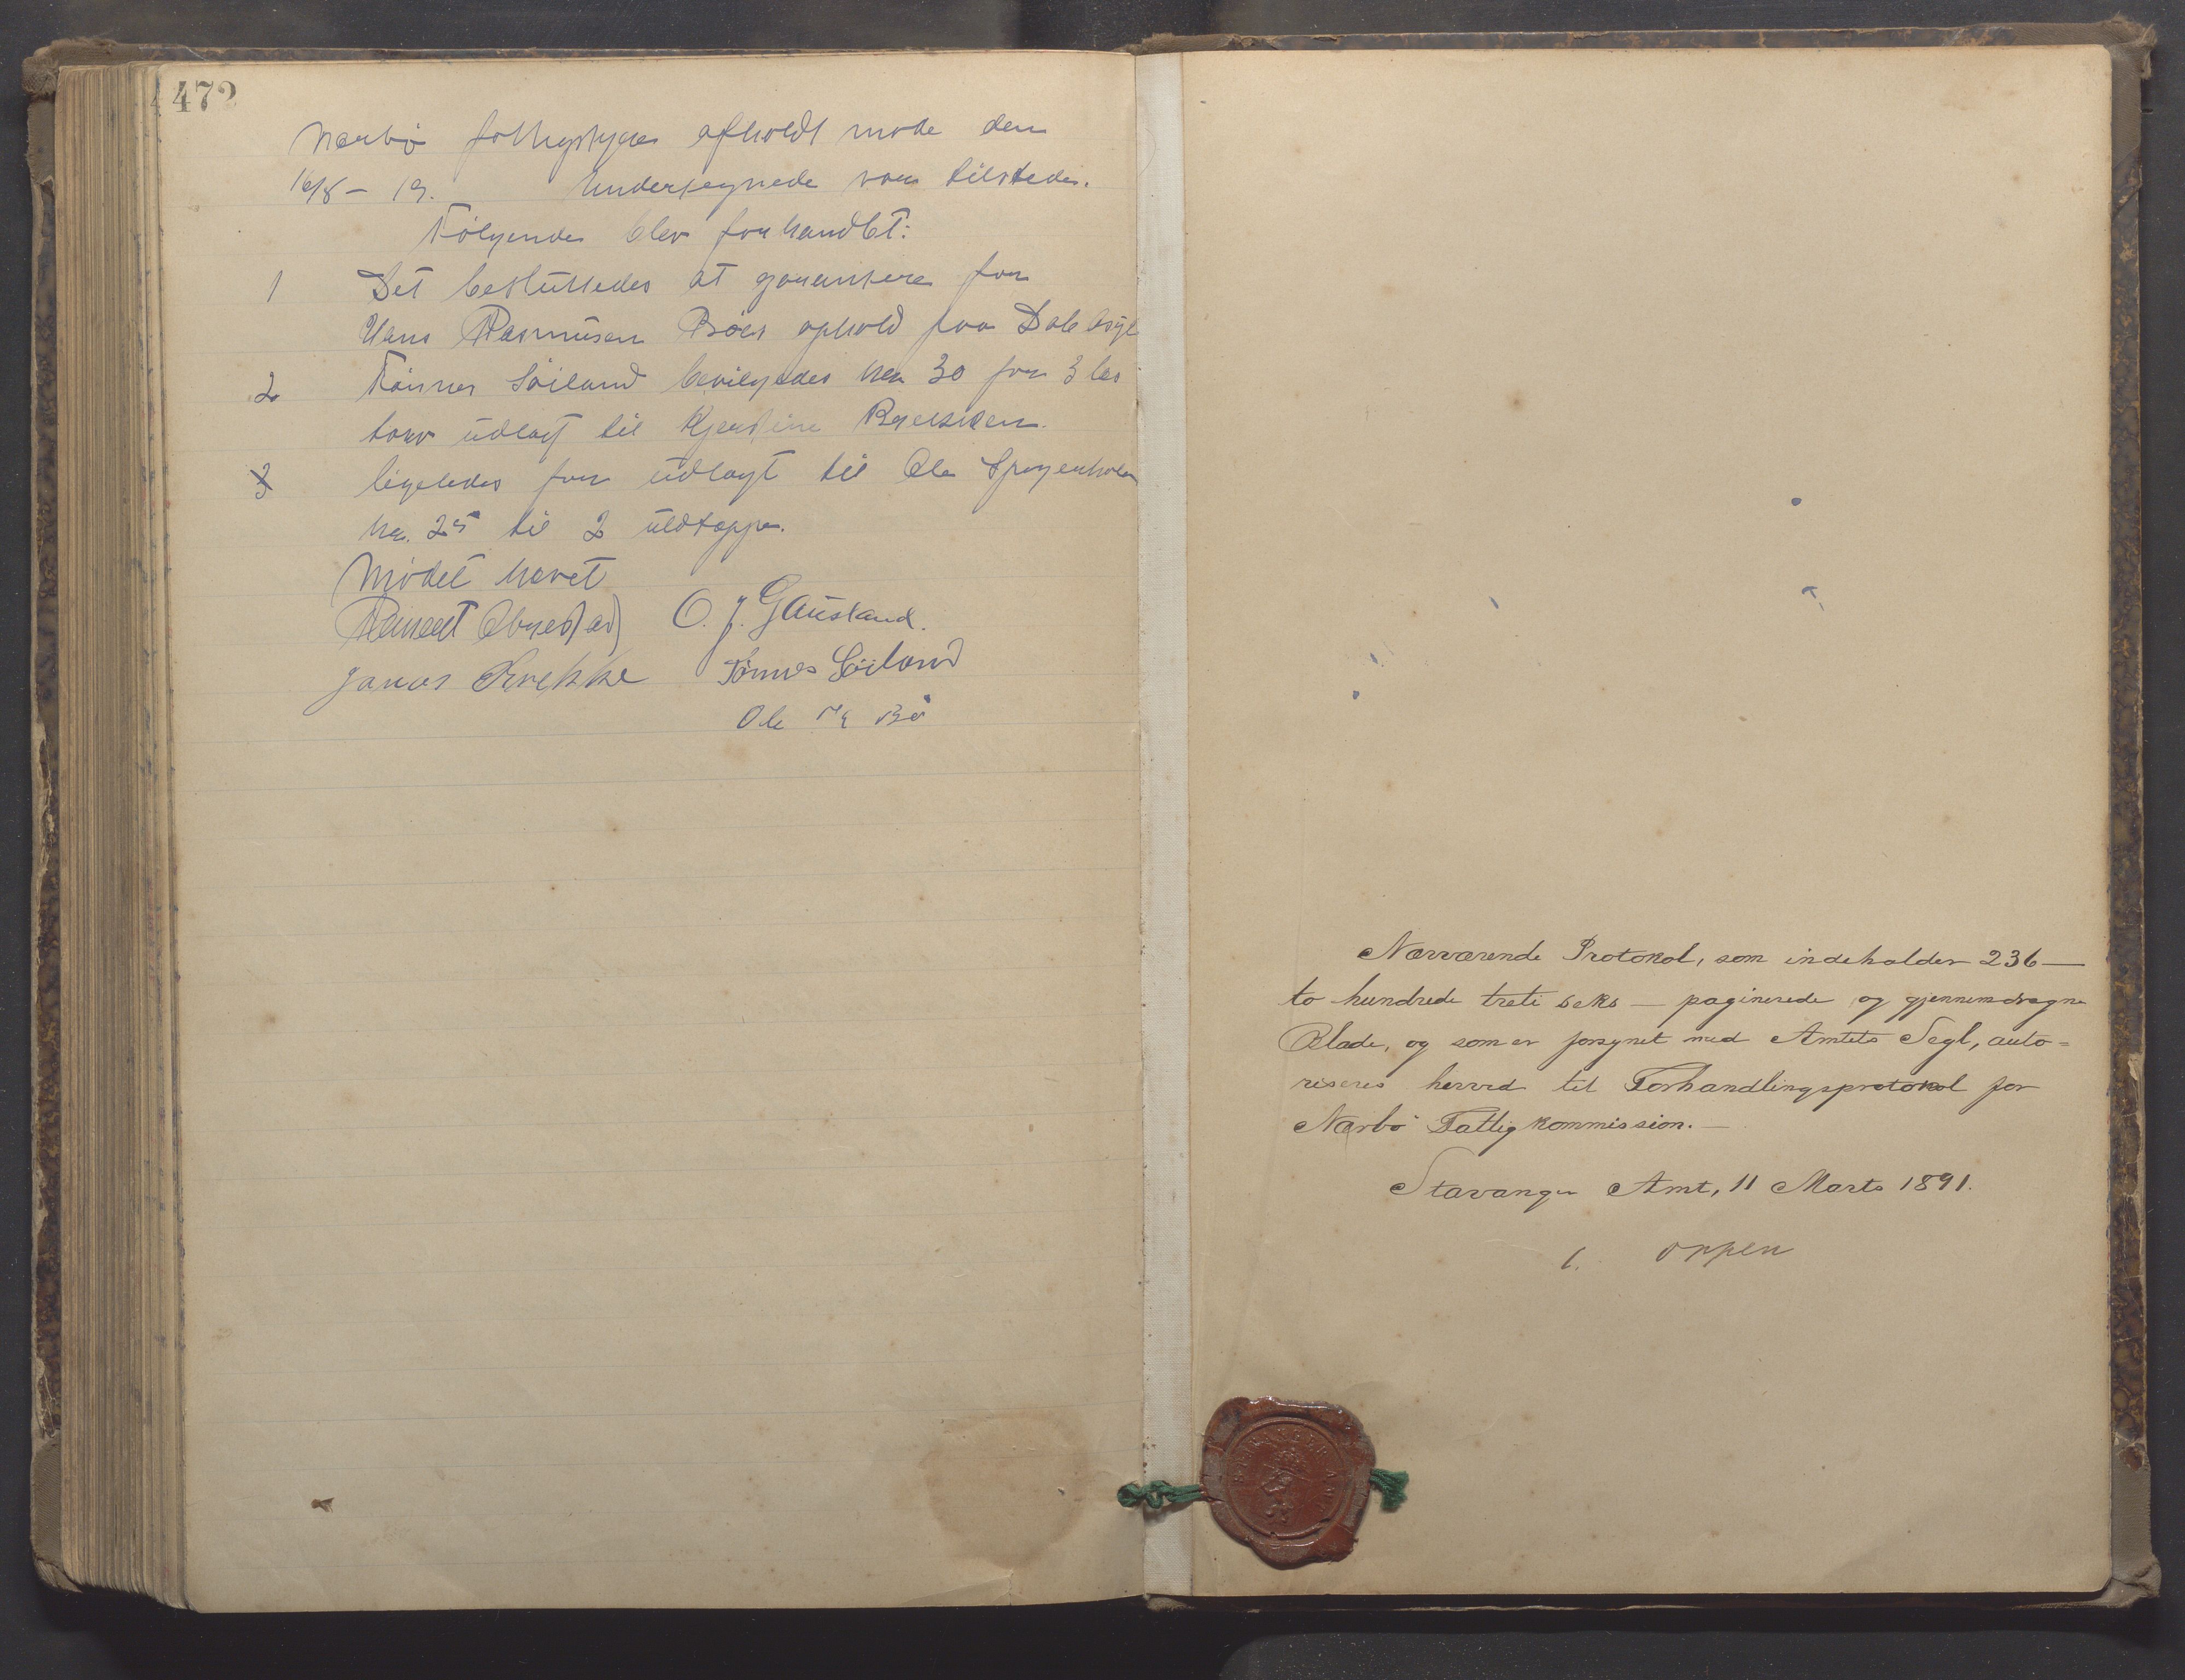 472
Nærbø fattigstyre afholdt møde den
16/8 - 19. Undertegnede var tilstede.
Følgende blev forhandlet:
1 Det besluttedes at garantere for
Hans Rasmusen Bøes ophold paa Dale Asyl
2 Tønnes Søiland bevilgedes kr 30 for 3 læs
torv udlagt til
3 ligeledes for udlagt til Ole
kr. 25 til 2 uldtæpper.
Mødet hævet
Reinert Obrestad O. J. Gausland.
Jonas Kvekke Tønnes Söiland
Ole Bö
Nærværende Protokol, som indeholder 236 —
to hundrede treti seks — paginerede og gjennemdragne
Blade, og som er forsynet med Amtets Segl, auto=
riseres herved til Forhandlingsprotokol for
Nærbø Fattigkommission. —
Stavanger Amt, 11 Marts 1891.
Oppen
STAVANGER AMT